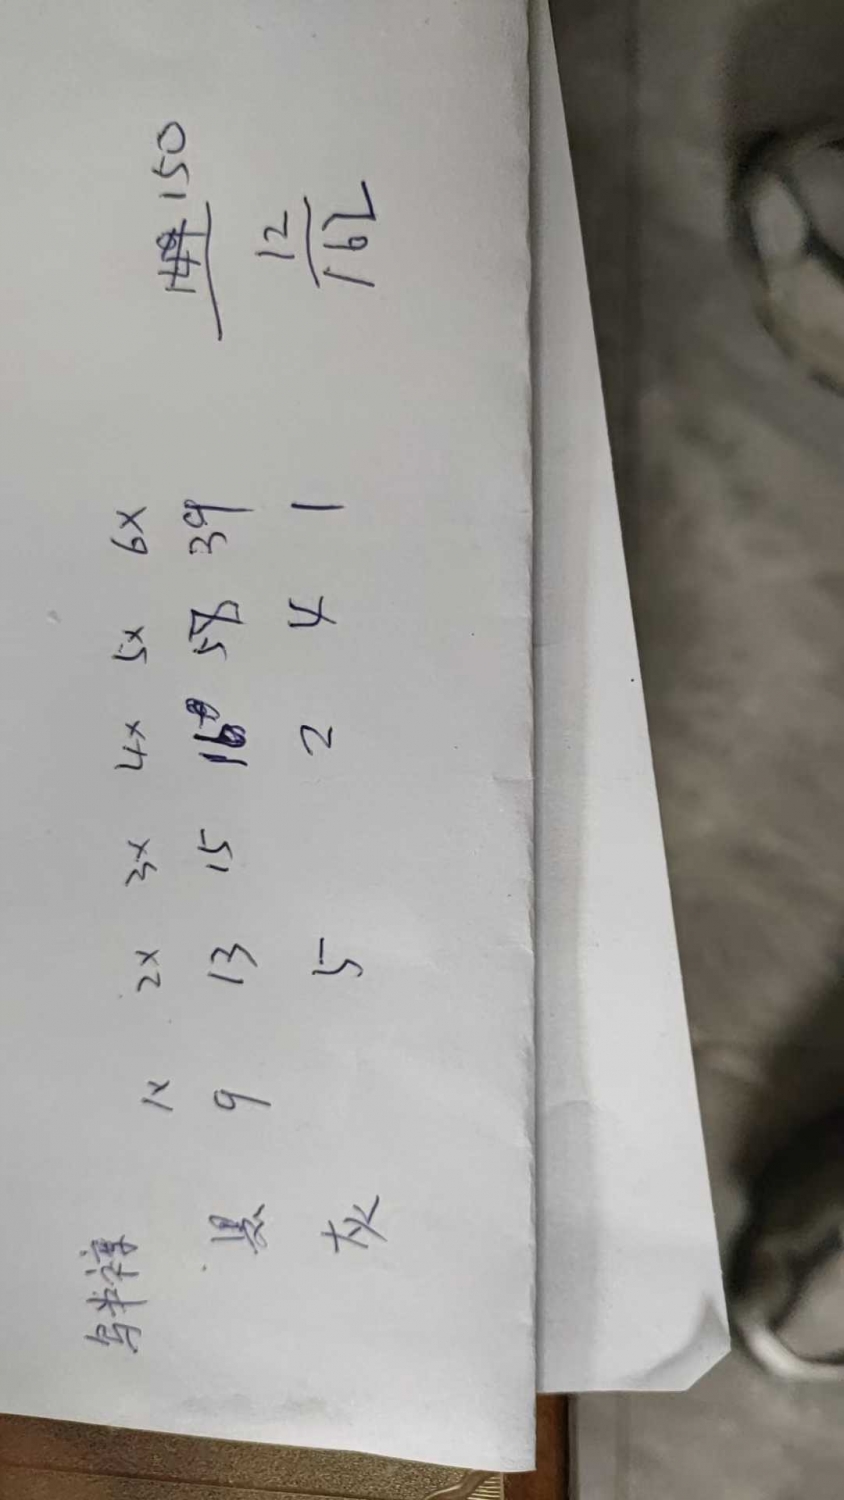 半 1x 2x 3x 4x 5x 6x
黑 9 13 15 16 58 39 149 150
灰 5 2 4 1 12
162